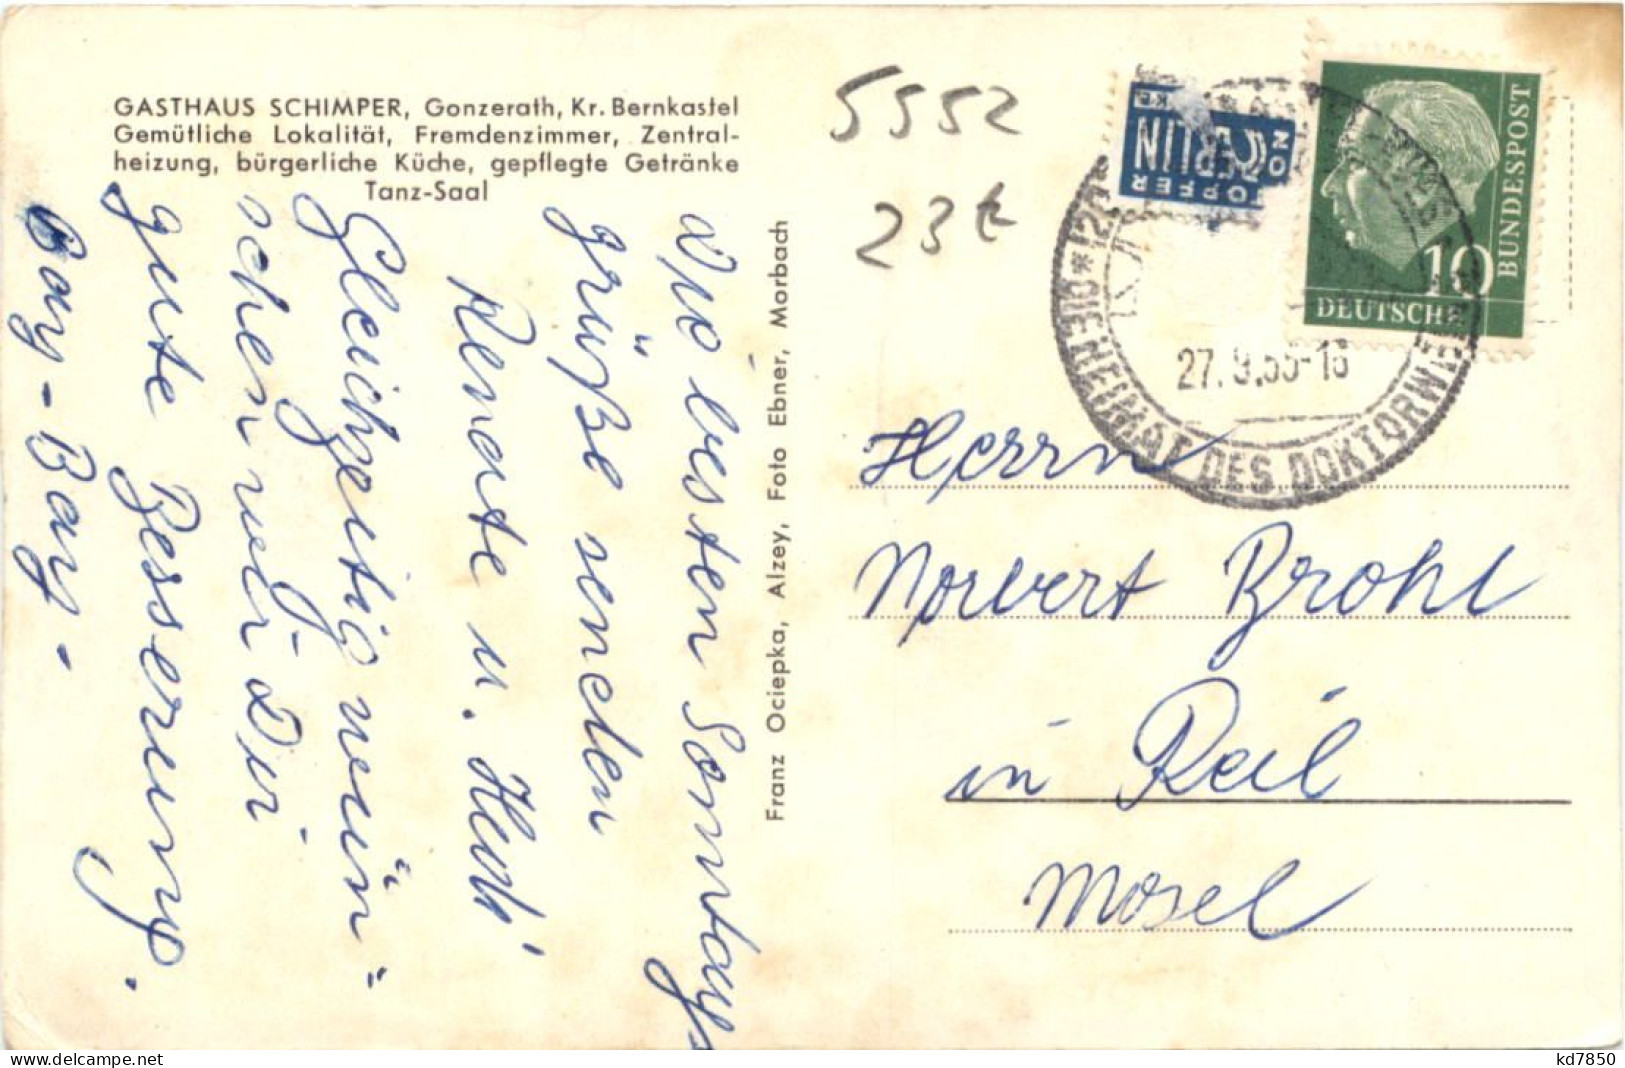 GASTHAUS SCHIMPER, Gonzerath, Kr. Bernkastel
Gemütliche Lokalität, Fremdenzimmer, Zentral-
heizung, bürgerliche Küche, gepflegte Getränke
Tanz-Saal
besten Sonntags
grüße senden
Renate u. Heidi
Gleichzeitig wün-
schen wir Dir
gute Besserung.
Bay-Bay.
Franz Ociepka, Alzey, Foto Ebner, Morbach
5552
23 t
NOTOPFER
BERLIN
DEUTSCHE
BUNDESPOST
10
27.9.55-16
DIE HEIMAT DES DOKTORWE
Herrn
Norbert Brohl
in Reil
Mosel
delcampe.net
kd7850